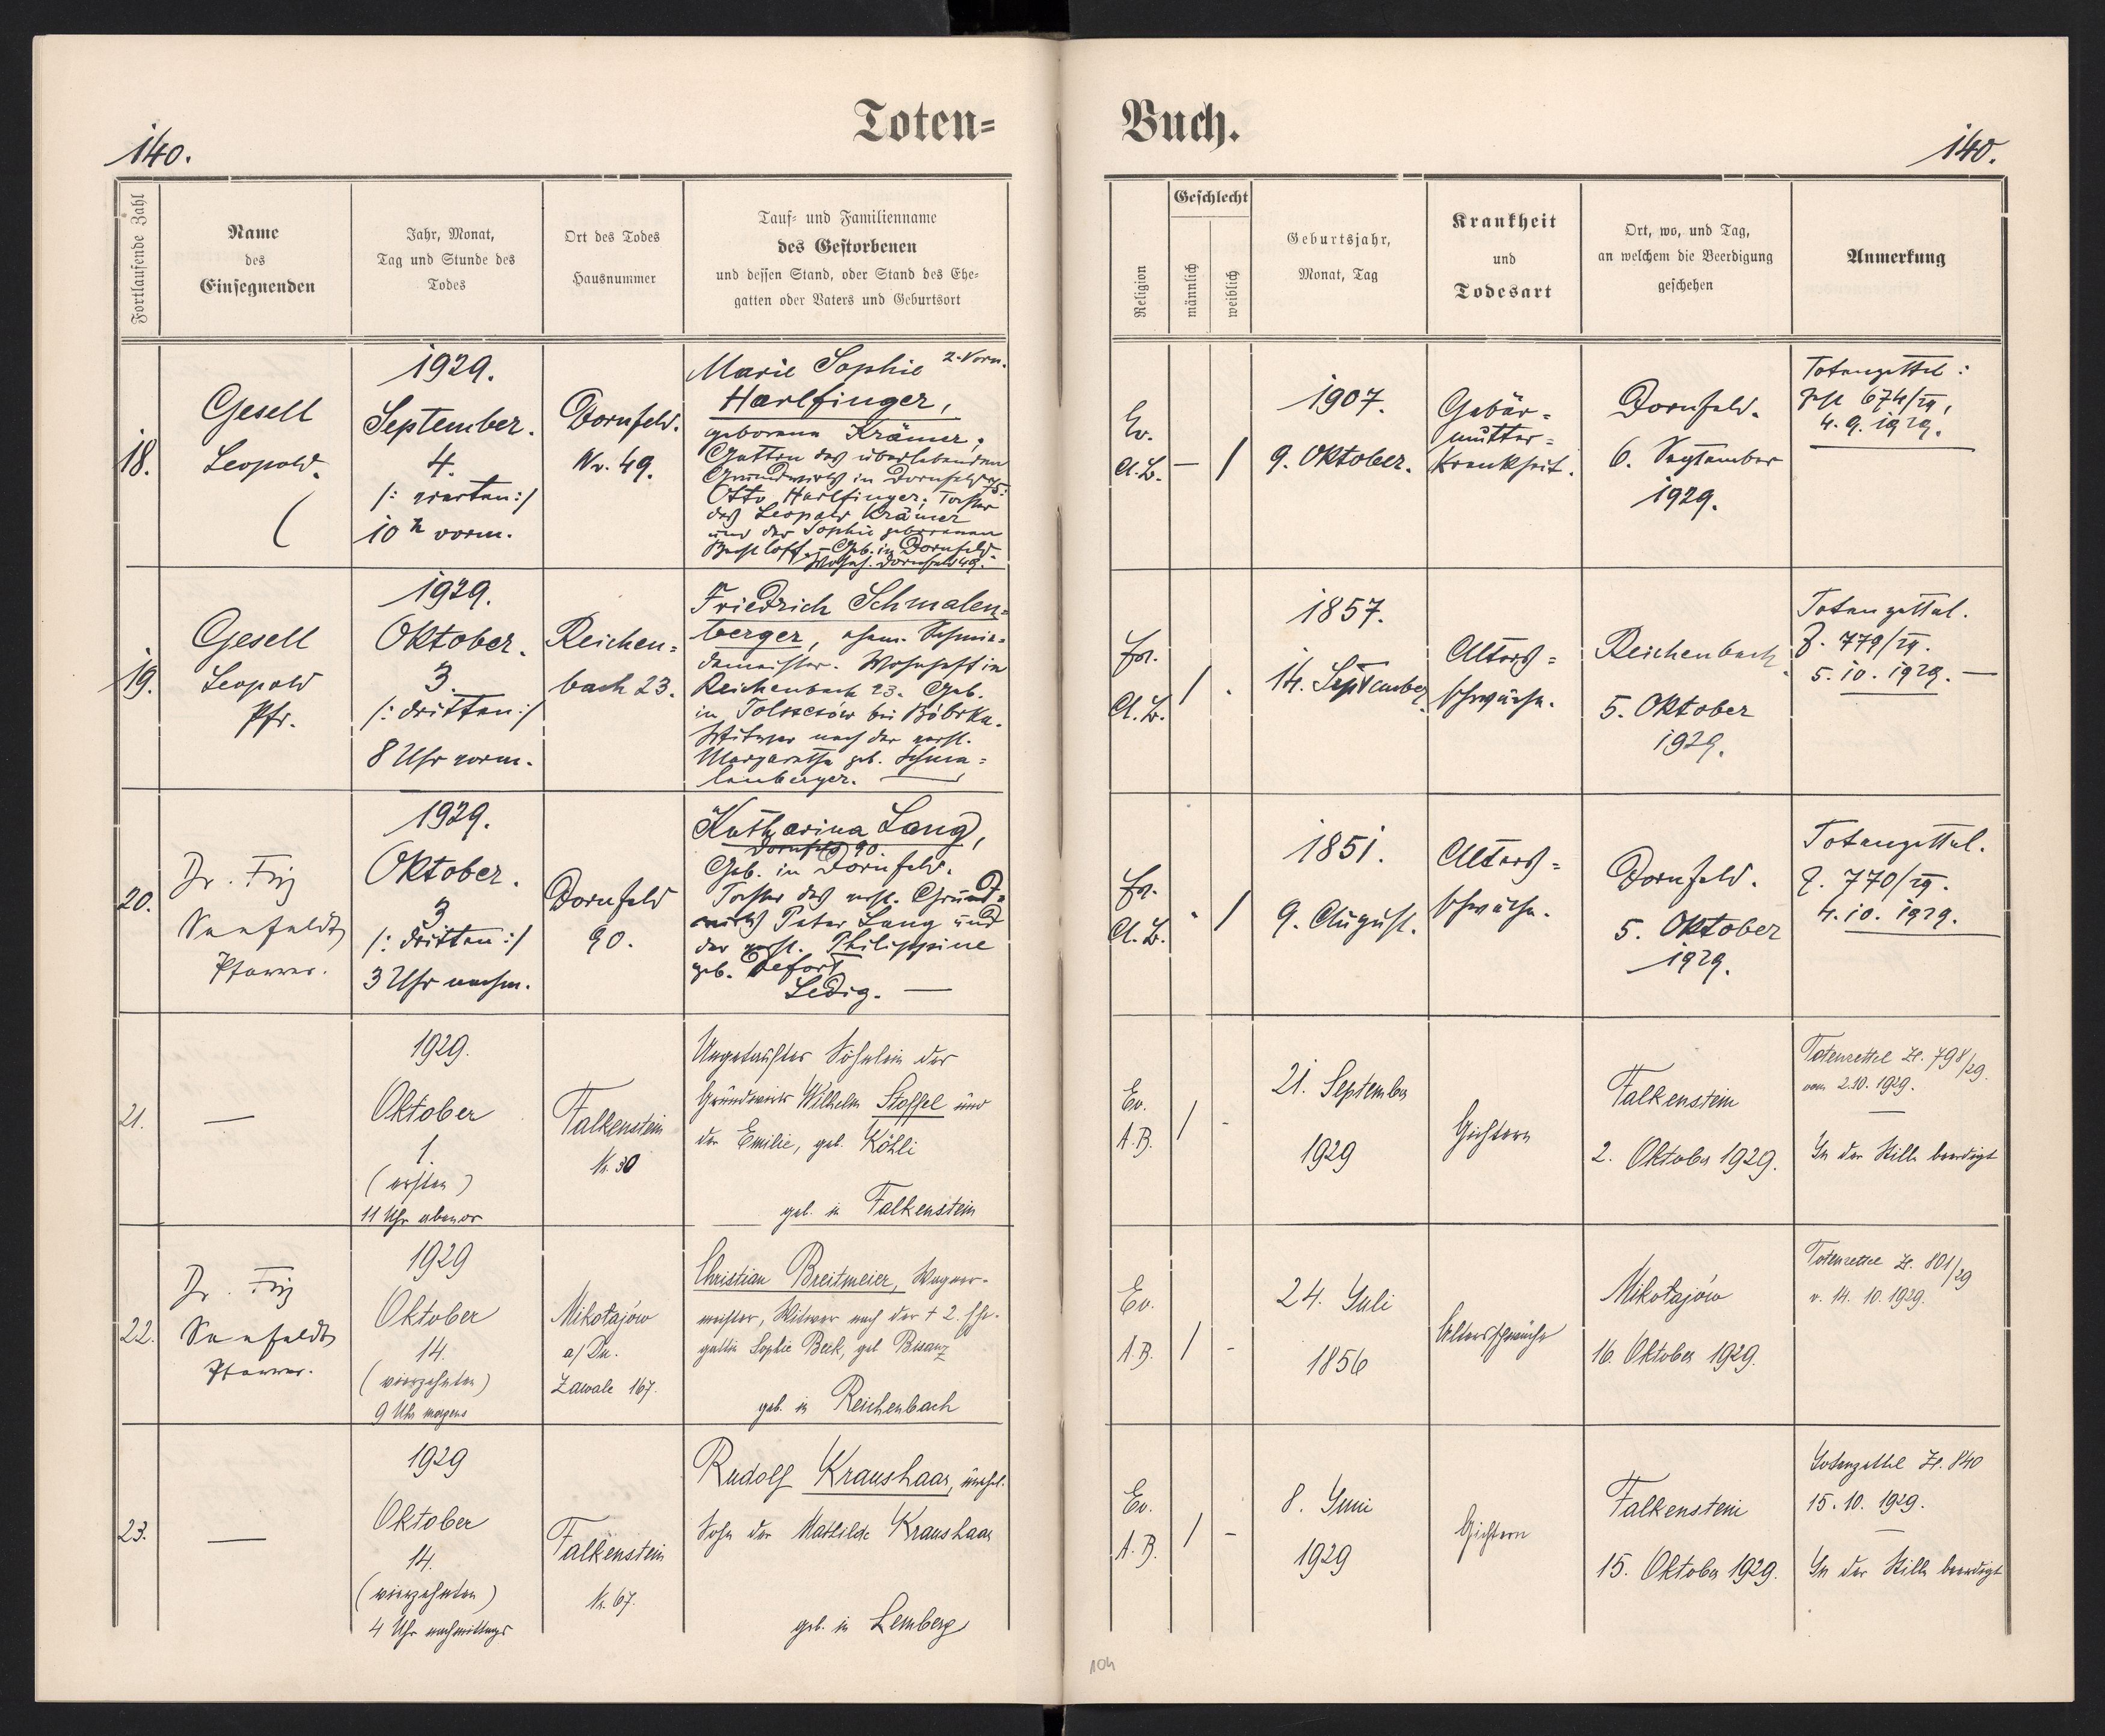 Toten=
Buch.
140.
140.
Fortlaufende Zahl
Name
des
Einsegnenden
Jahr, Monat,
Tag und Stunde des
Todes
Ort des Todes
Hausnummer
Tauf= und Familienname
des Gestorbenen
und dessen Stand, oder Stand des Ehe=
gatten oder Vaters und Geburtsort
Religion
Geschlecht
männlich
weiblich
Geburtsjahr,
Monat, Tag
Krankheit
und
Todesart
Ort, wo, und Tag,
an welchem die Beerdigung
geschehen
Anmerkung
18.
Gesell
Leopold.
1929.
September.
4.
/: vierten :/
10 h vorm.
Dornfeld.
Nr. 49.
Marie Sophie 2. Vorn.
Harlfinger,
geborene Krämer,
Gattin des überlebenden
Grundwirts in Dornfeld
Otto Harlfinger; Tochter
des Leopold Krämer
und der Sophie geborenen
Bechtloff. – Geb. in Dornfeld.
Wohnh. Dornfeld 49.
Ev.
A.B.
— /
1907.
9. Oktober.
Gebär=
mutter=
krankheit.
Dornfeld.
6. September
1929.
Totenzettel:
674/29,
4. 9. 1929.
19.
Gesell
Leopold
Pfr.
1929.
Oktober.
3.
/: dritten :/
8 Uhr vorm.
Reichen=
bach 23.
Friedrich Schmalen=
berger, ehem. Schmie=
demeister. Wohnhaft in
Reichenbach 23. Geb.
in Tolszczów bei Bóbrka.
Witwer nach der verst.
Margaretha geb. Schma=
lenberger. —
Ev.
A.B.
/ .
1857.
14. September.
Alters=
schwäche.
Reichenbach.
5. Oktober
1929.
Totenzettel.
Z. 779/29.
5. 10. 1929. —
20.
Dr. Friz
Seefeldt
Pfarrer.
1929.
Oktober.
3
/: dritten :/
3 Uhr nachm.
Dornfeld
90.
Katharina Lang,
Dornfeld 90.
Geb. in Dornfeld.
Tochter des verst. Grund=
wirts Peter Lang und
der verst. Philippine
geb. Defort
Ledig. —
Ev.
A.B.
. /
1851.
9. August.
Alters=
schwäche.
Dornfeld.
5. Oktober
1929.
Totenzettel.
Z. 770/29.
4. 10. 1929.
21.
—
1929.
Oktober
1.
(ersten)
11 Uhr abends
Falkenstein
Nr. 30
Ungetauftes Söhnlein des
Grundwirts Wilhelm Stoffel und
der Emilie, geb. Köhli
geb. in Falkenstein
Ev.
A.B.
/ -
21. September
1929
Gichtern
Falkenstein
2. Oktober 1929.
Totenzettel Zl. 798/29.
vom 2.10. 1929.
—
In der Stille beerdigt
22.
Dr. Friz
Seefeldt
Pfarrer.
1929
Oktober
14.
(vierzehnten)
9 Uhr morgens
Mikołajów
a/Dn.
Zawale 167.
Christian Breitmeier, Wagner-
meister, Witwer nach der † 2. Ehe-
gattin Sophie Beck, geb Bisanz
geb. in Reichenbach
Ev.
A.B.
/ -
24. Juli
1856
Altersschwäche
Mikołajów
16. Oktober 1929.
Totenzettel Zl. 801/29
v. 14. 10. 1929.
23.
—
1929
Oktober
14.
(vierzehnten)
4 Uhr nachmittags
Falkenstein
Nr. 67.
Rudolf Kraushaar, unehel.
Sohn der Mathilde Kraushaar
geb. in Lemberg
Ev.
A.B.
/ -
8. Juni
1929
Gichtern
Falkenstein
15. Oktober 1929.
Totenzettel Zl. 840
15. 10. 1929.
—
In der Stille beerdigt
104